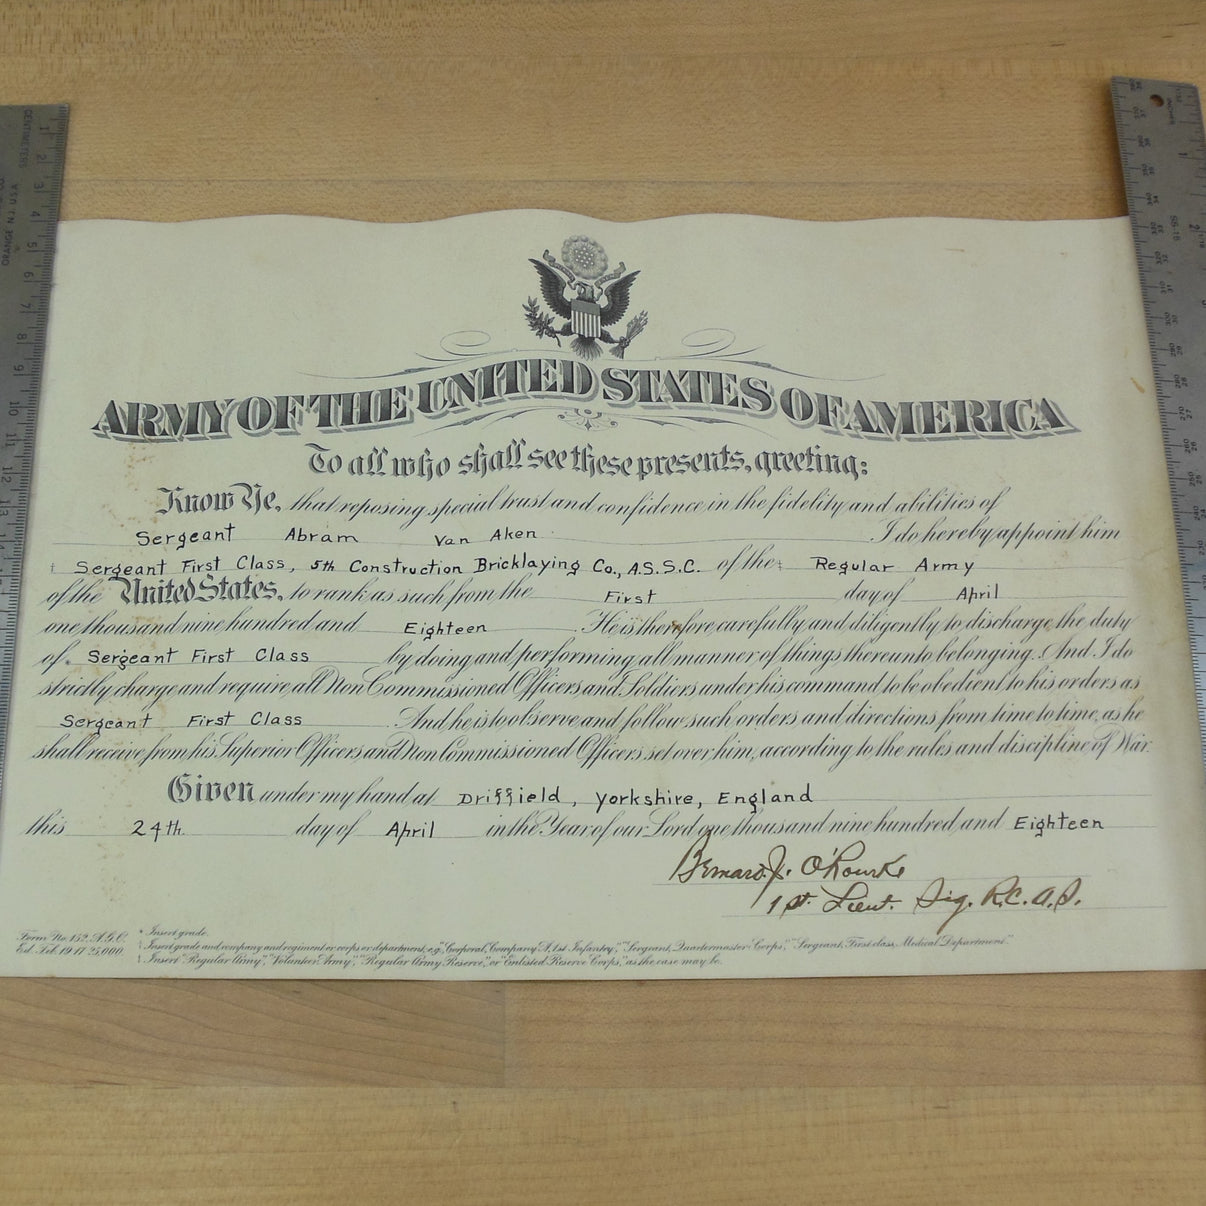 ARMY OF THE UNITED STATES OF AMERICA
To all who shall see these presents, greeting:
Know Ye, that reposing special trust and confidence in the fidelity and abilities of
Sergeant Abram Van Aken I do hereby appoint him
Sergeant First Class, 5th Construction Bricklaying Co., A.S.S.C. of the ‡ Regular Army
of the United States, to rank as such from the First day of April
one thousand nine hundred and Eighteen. He is therefore carefully and diligently to discharge the duty
of * Sergeant First Class by doing and performing all manner of things thereunto belonging. And I do
strictly charge and require all Non Commissioned Officers and Soldiers under his command to be obedient to his orders as
Sergeant First Class. And he is to observe and follow such orders and directions from time to time, as he
shall receive from his Superior Officers and Non Commissioned Officers set over him, according to the rules and discipline of War.
Given under my hand at Driffield, Yorkshire, England
this 24th day of April in the Year of our Lord one thousand nine hundred and Eighteen
Bernard J. O'Rourke
1st Lieut. Sig. R.C. A.S.
Form No. 152, A.G.O.
Ed. Feb. 19-17-25,000.
* Insert grade.
† Insert grade and company and regiment or corps or department, e.g., "Corporal, Company A, 1st Infantry," "Sergeant, Quartermaster Corps," "Sergeant, First class, Medical Department."
‡ Insert "Regular Army," "Volunteer Army," "Regular Army Reserve," or "Enlisted Reserve Corps," as the case may be.
CENTIMETERS
ORANGE N.J. U.S.A.